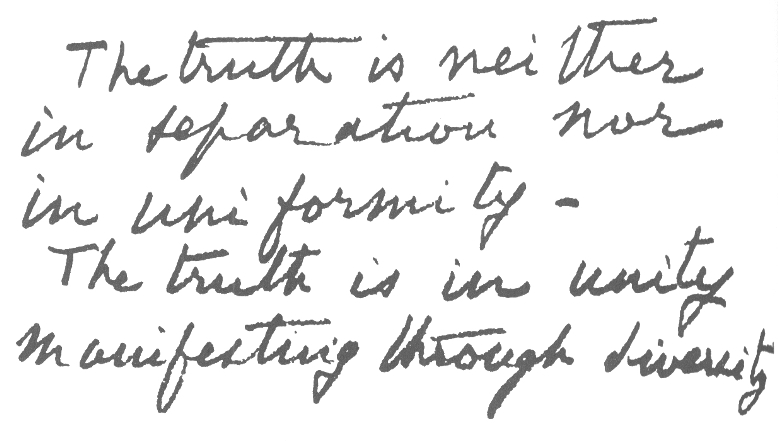 The truth is neither
in separation nor
in uniformity -
The truth is in unity
manifesting through diversity